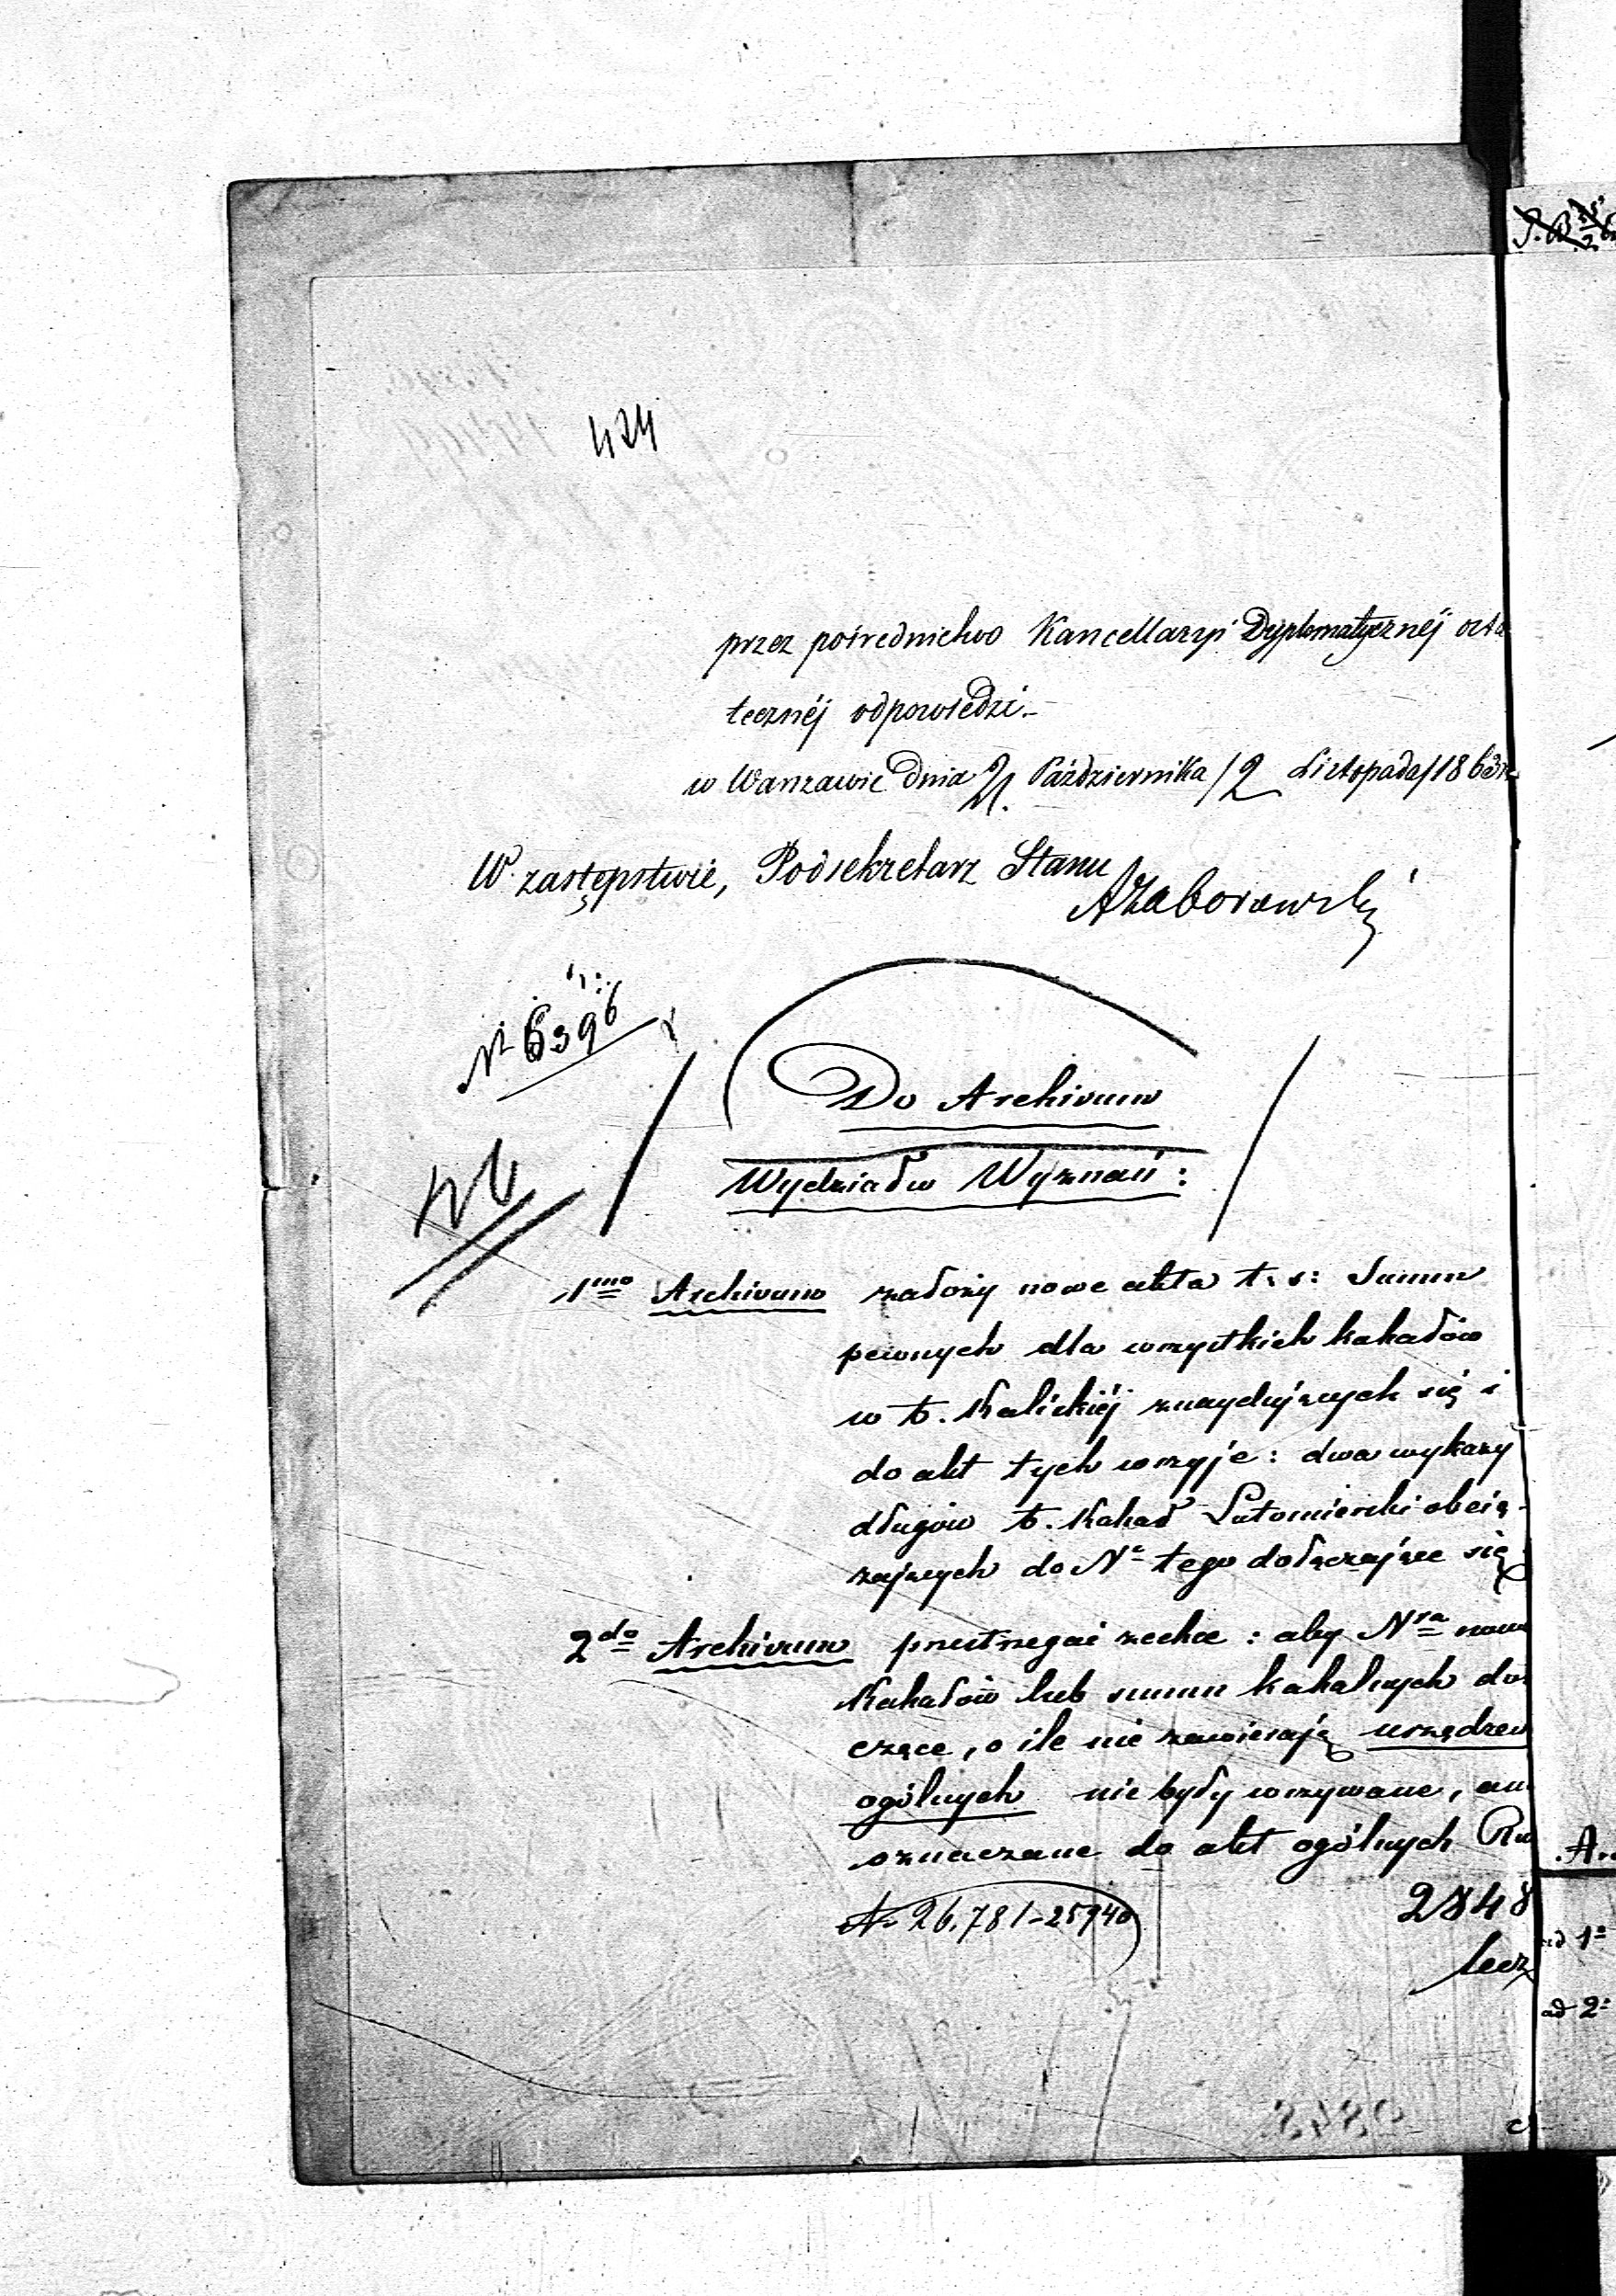 424
przez pośrednictwo Kancellaryi Dyplomatycznéj osta
tecznéj odpowiedzi.-
w Warszawie dnia 21. Października /2 Listopada/ 1863 r.
W. zastępstwie, Podsekretarz Stanu
AZaborowski
N 6396
Do Archivum
Wydziału Wyznań:
1mo Archivum założy nowe akta t. s: Summ
pewnych dla wszystkich kahałów
w b. Kalickiéj znaydujących się i
do akt tych wszyje: dwa wykazy
długów b. Kahał Lutomierski obcią-
zających do Nr tego dołączające się
2do Archivum przestrzegać zechce: aby Nra nowe
Kahałów lub summ kahalnych do
czące, o ile nie zawierają urządzeń
ogólnych nie były wszywane, ani
oznaczane do akt ogólnych
N. 26,781-25940
2848
lecz
ad 1o
ad 2o